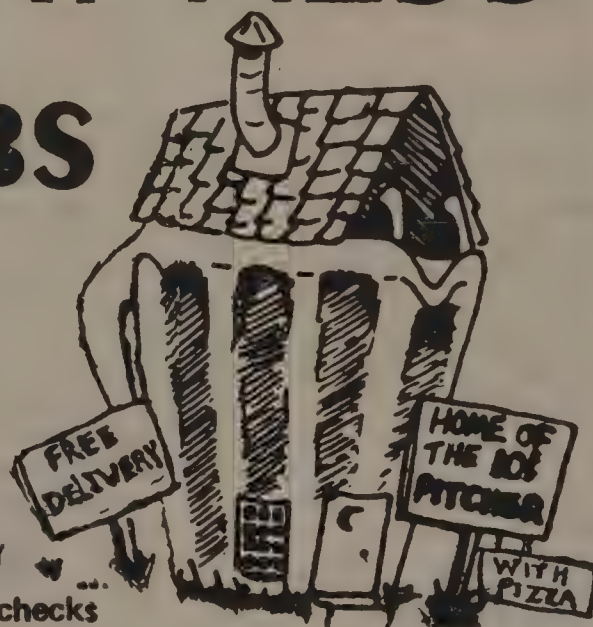 BS
FREE
DELIVERY
HOME OF
THE 10¢
PITCHER
WITH
PIZZA
checks